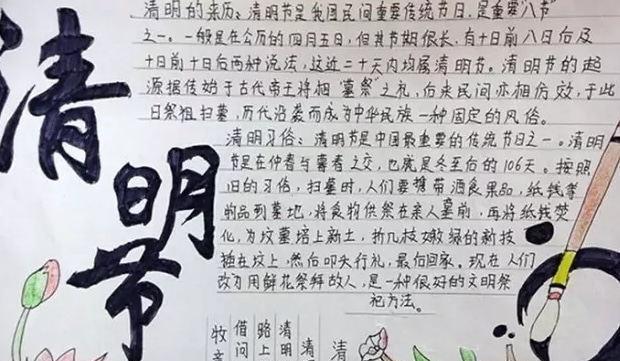 清明节
清明的来历：清明节是我国民间重要传统节日，是重要"八节"
之一。一般是在公历的四月五日，但其节期很长，有十日前八日后及
十日前十日后两种说法，这近二十天内均属清明节。清明节的起
源据传始于古代帝王将相"墓祭"之礼，后来民间亦相仿效，于此
日祭祖扫墓，历代沿袭而成为中华民族一种固定的风俗。
清明习俗：清明节是中国最重要的传统节日之一。清明
节是在仲春与暮春之交，也就是冬至后的106天。按照
旧的习俗，扫墓时，人们要携带酒食果品，纸钱等
物品到墓地，将食物供祭在亲人墓前，再将纸钱焚
化，为坟墓培上新土，折几枝嫩绿的新枝
插在坟上，然后叩头行礼，最后回家。现在人们
改为用鲜花祭拜故人，是一种很好的文明祭
祀方法。
清
清
清明
路上
借问
牧